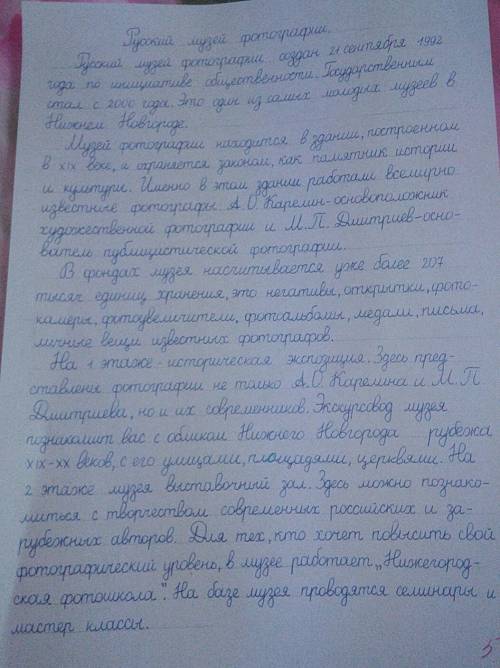 Русский музей фотографии.
Русский музей фотографии создан 21 сентября 1992
года по инициативе общественности. Государственным
стал с 2000 года. Это один из самых молодых музеев в
Нижнем Новгороде.
Музей фотографии находится в здании, построенном
в XIX веке, и охраняется законом, как памятник истории
и культури. Именно в этом здании работали всемирно
известные фотографы А.О.Карелин-основоположник
художественной фотографии и М.П. Дмитриев-осно-
ватель публицистической фотографии.
В фондах музея насчитывается уже более 207
тысяч единиц хранения, это негативы, открытки, фото-
камеры, фотоувеличители, фотоальбомы, медали, письма,
личные вещи известных фотографов.
На 1 этаже-историческая экспозиция. Здесь пред-
ставлены фотографии не только А.О.Карелина и М.П
Дмитриева, но и их современников. Экскурсовод музея
познакомит вас с обликом Нижнего Новгорода рубежа
XIX-XX веков, с его улицами, площадями, церквями. На
2 этаже музея выставочный зал. Здесь можно познако-
миться с творчеством современных российских и за-
рубежных авторов. Для тех, кто хочет повысить свой
фотографический уровень, в музее работает „Нижегород-
ская фотошкола". На базе музея проводятся семинары и
мастер классы.
5